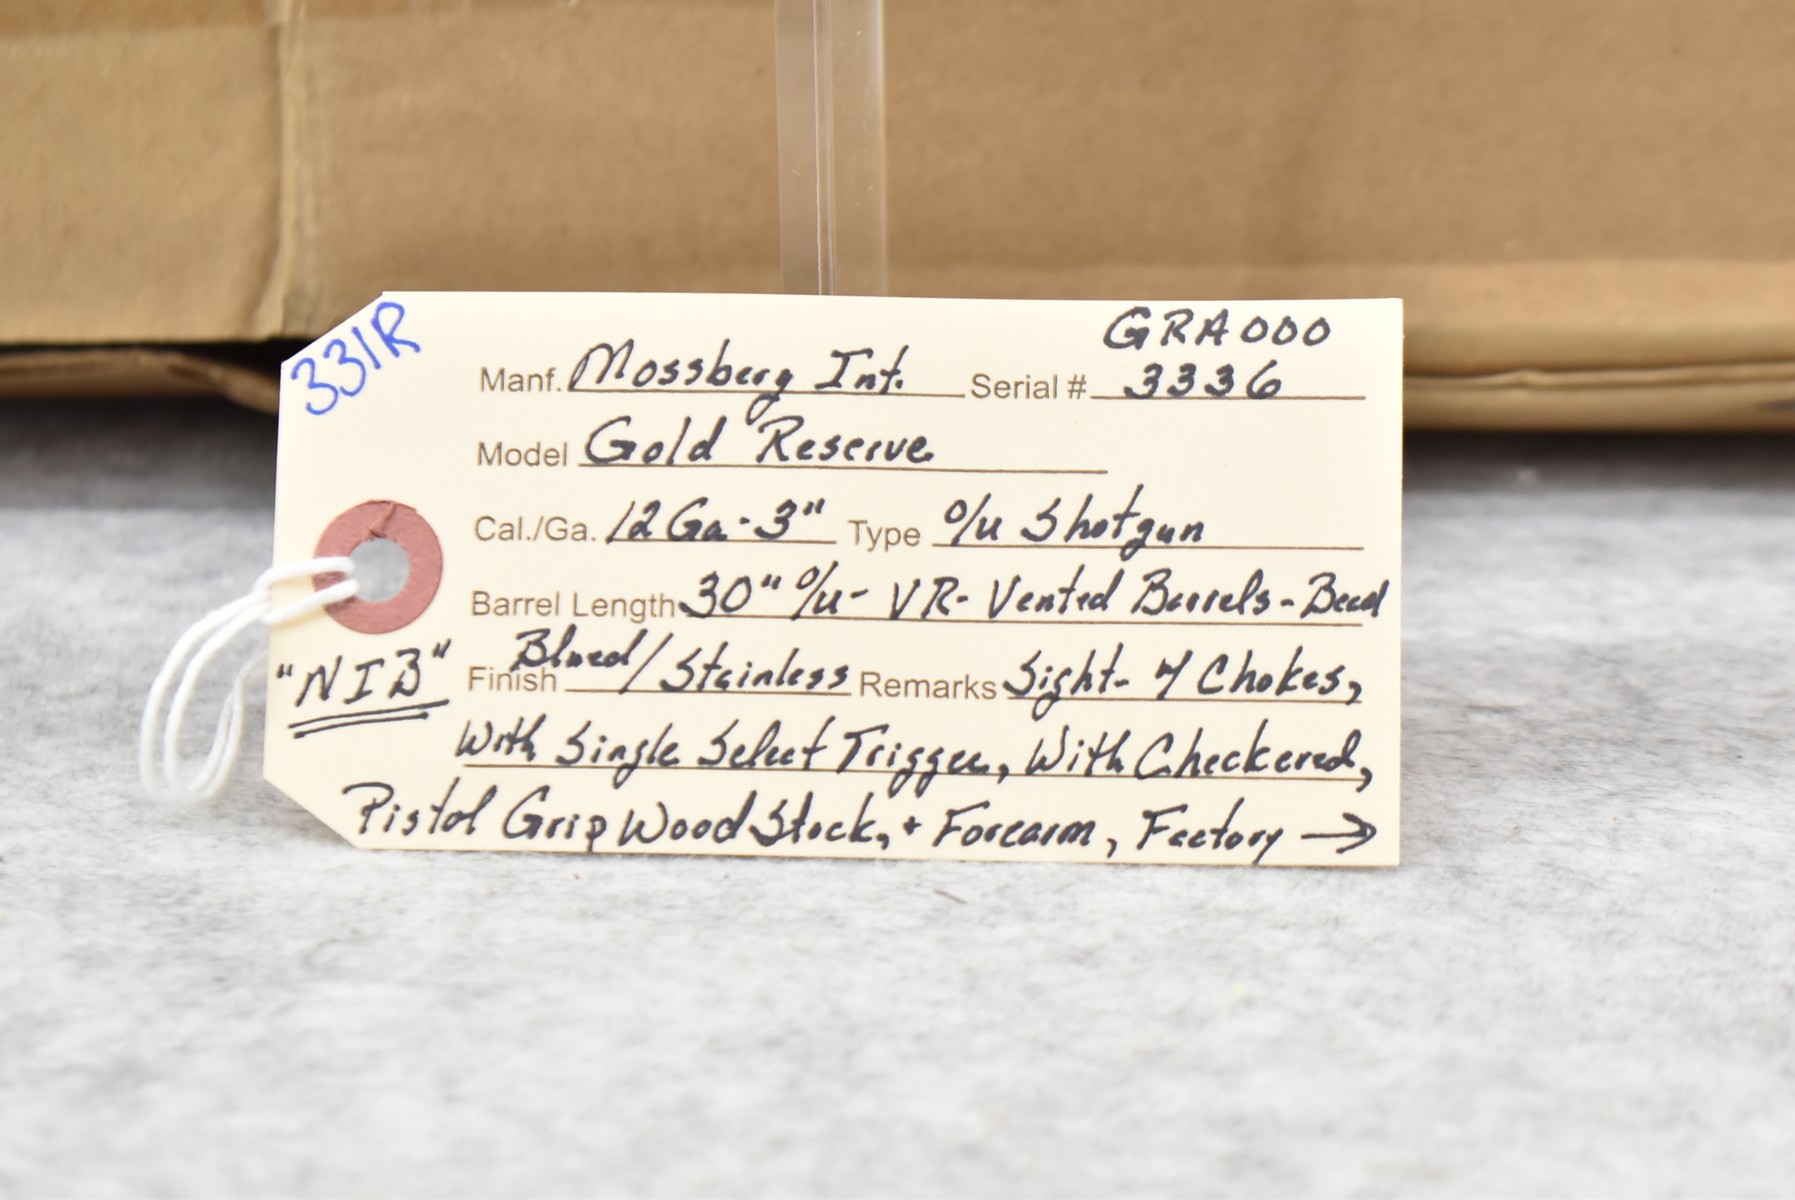 331R
GRA000
Manf. Mossberg Int. Serial # 3336
Model Gold Reserve
Cal./Ga. 12 Ga - 3" Type O/U Shotgun
Barrel Length 30" O/U - VR - Vented Barrels - Bead
"NIB" Finish Blued/Stainless Remarks Sight - 4 Chokes,
With Single Select Trigger, With Checkered,
Pistol Grip Wood Stock, + Forearm, Factory →